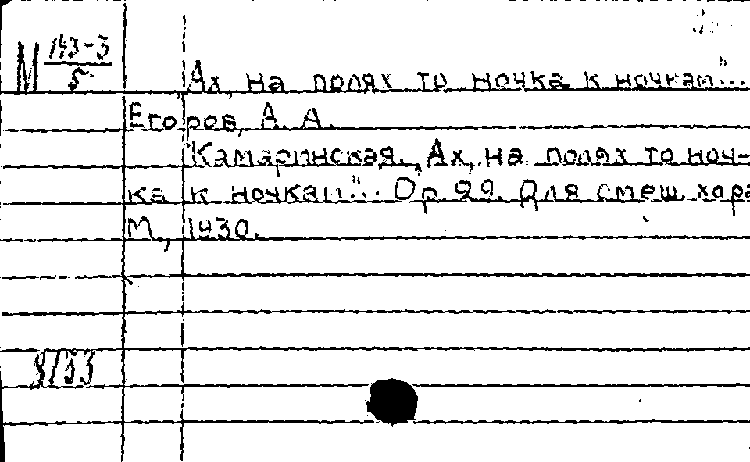 М 143-3/5
„Ах, на полях то ночка к ночкам"...
Егоров, А. А.
Камаринская. „Ах, на полях то ноч-
ка к ночкам"... Ор. 29. Для смеш. хора
М., 1930.
8153